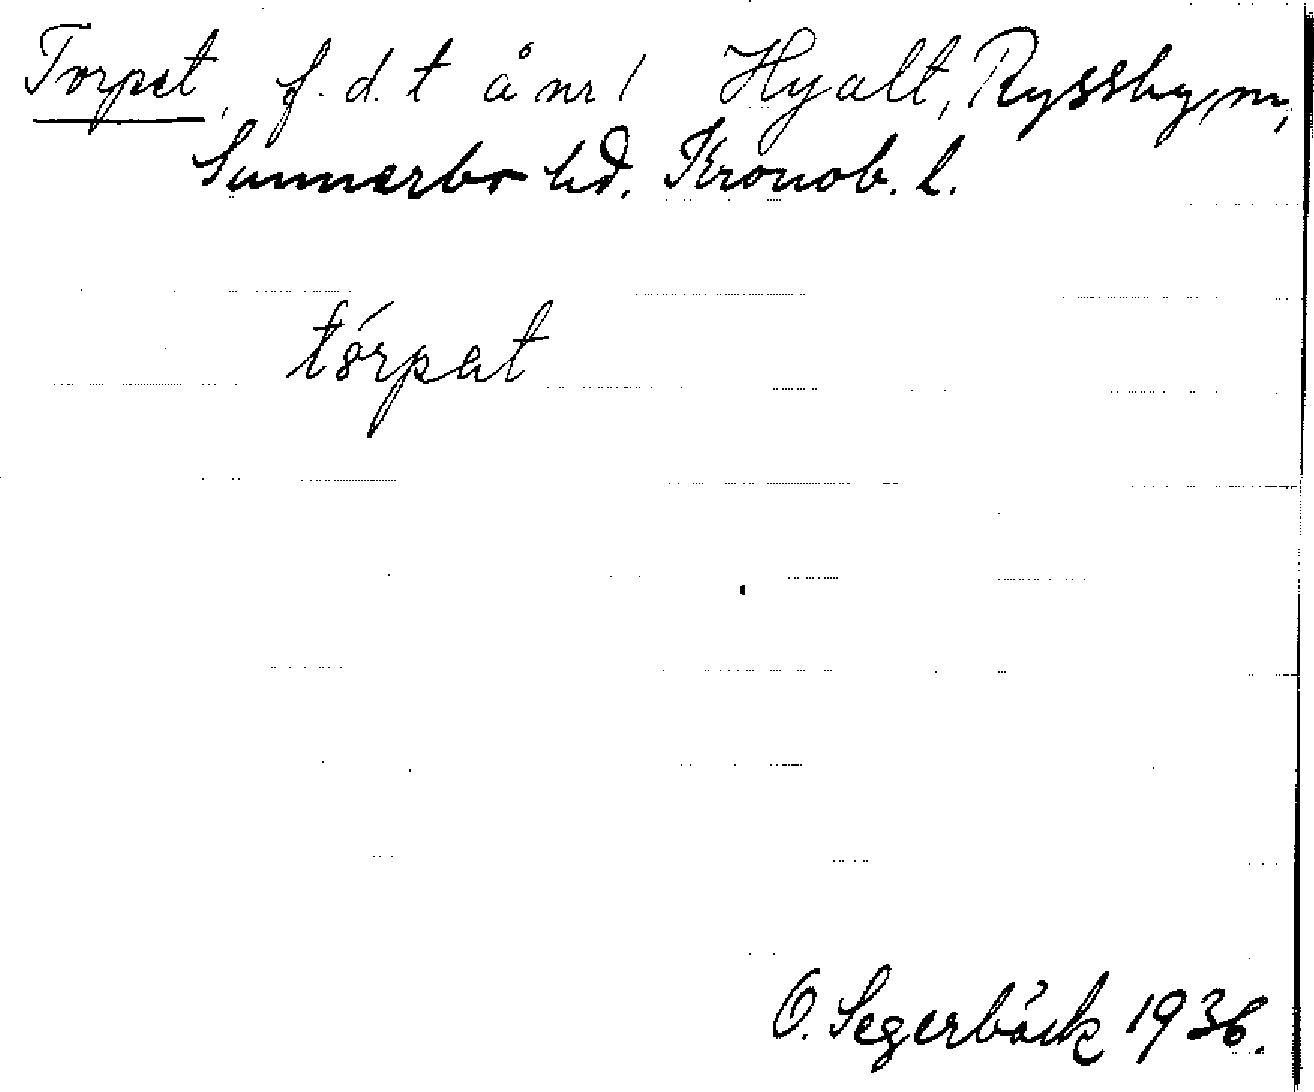 Torpet, f.d.t å nr 1 Hyalt, Ryssby sn,
Sunnerbo hd. Kronob. l.
tórpat
O. Segerbäck 1936.